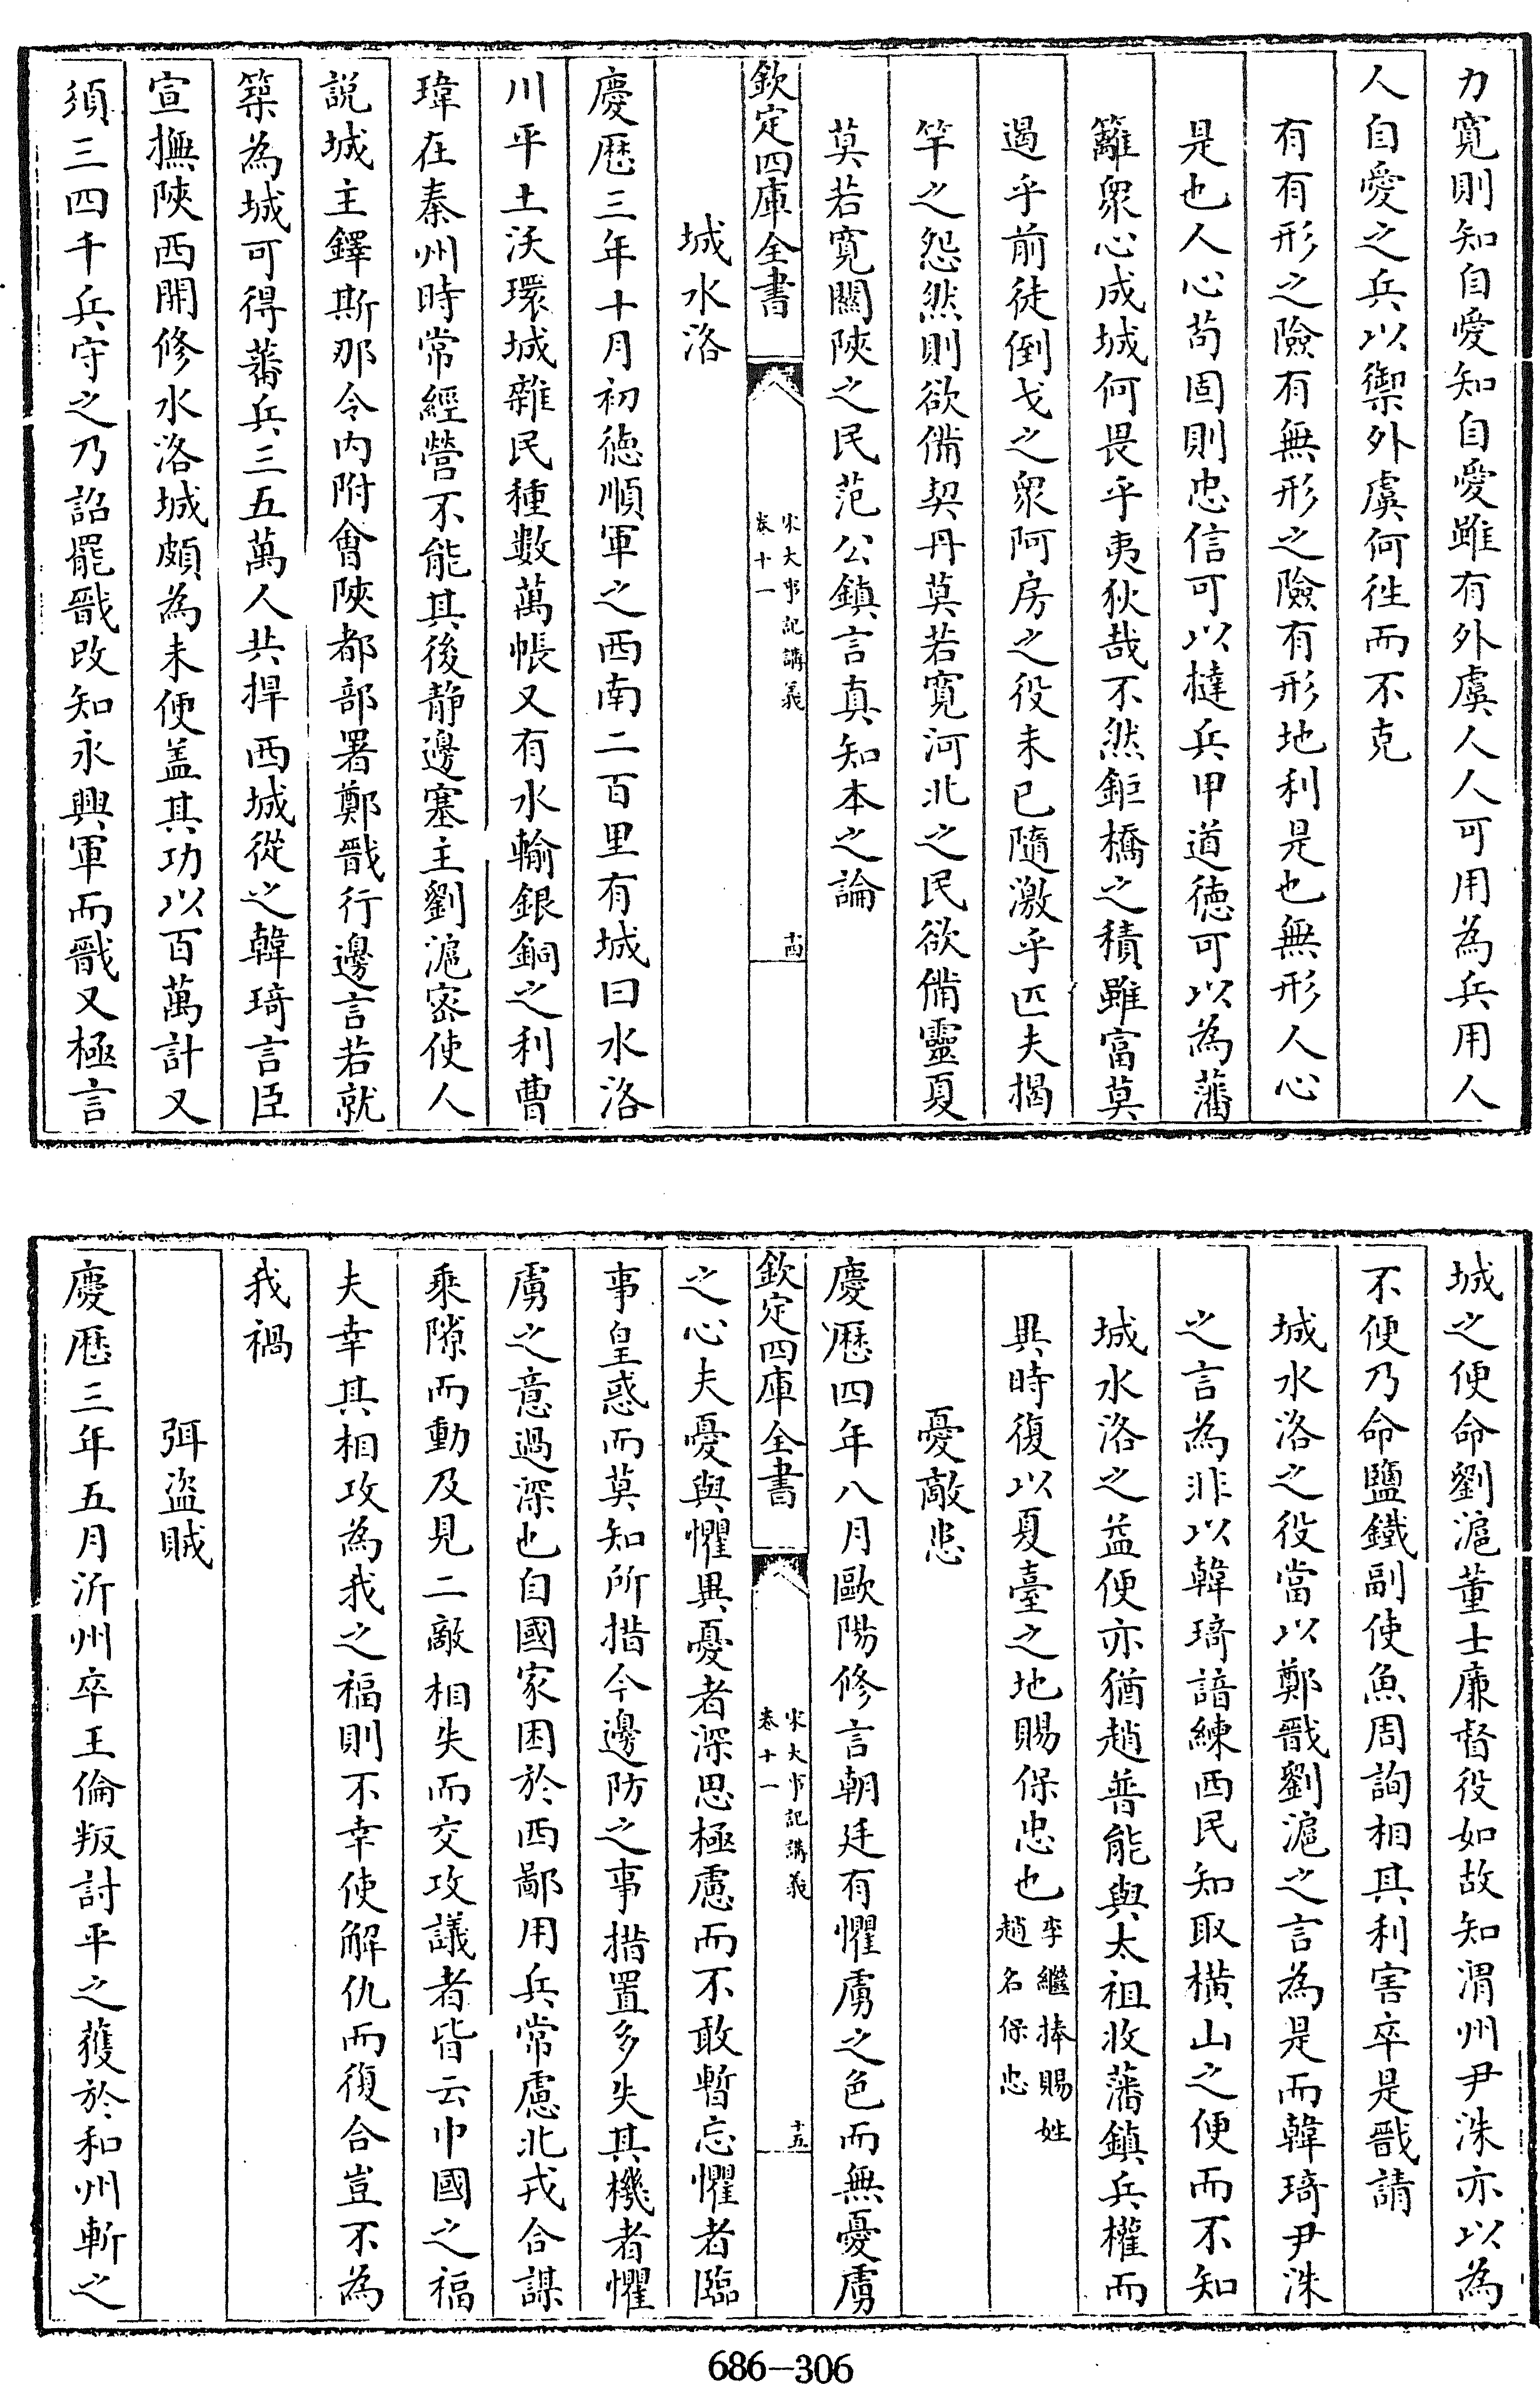 力寛則知自愛知自愛雖有外虞人人可用為兵用人
人自愛之兵以禦外虞何徃而不克
有有形之險有無形之險有形地利是也無形人心
是也人心茍固則忠信可以撻兵甲道徳可以為藩
籬衆心成城何畏乎夷狄哉不然鉅橋之積雖富莫
遏乎前徒倒戈之衆阿房之役未已隨激乎匹夫揭
竿之怨然則欲備契丹莫若寛河北之民欲備靈夏
莫若寛關陜之民范公鎮言真知本之論
欽定四庫全書
宋大事記講義
卷十一
十四
城水洛
慶厯三年十月初徳順軍之西南二百里有城曰水洛
川平土沃環城雜民種數萬帳又有水輸銀銅之利曹
瑋在秦州時常經營不能其後静邊塞主劉滬宻使人
説城主鐸斯那令内附㑹陜都部署鄭戩行邊言若就
築為城可得蕃兵三五萬人共捍西城從之韓琦言臣
宣撫陜西開修水洛城頗為未便盖其功以百萬計又
須三四千兵守之乃詔罷戩改知永興軍而戩又極言
城之便命劉滬董士亷督役如故知渭州尹洙亦以為
不便乃命鹽鐵副使魚周詢相其利害卒是戩請
城水洛之役當以鄭戩劉滬之言為是而韓琦尹洙
之言為非以韓琦諳練西民知取横山之便而不知
城水洛之益便亦猶趙普能與太祖收藩鎮兵權而
異時復以夏臺之地賜保忠也
李繼捧賜姓
趙名保忠
憂敵患
慶厯四年八月歐陽修言朝廷有懼虜之色而無憂虜
欽定四庫全書
宋大事記講義
卷十一
十五
之心夫憂與懼異憂者深思極慮而不敢暫忘懼者臨
事皇惑而莫知所措今邊防之事措置多失其機者懼
虜之意過深也自國家困於西鄙用兵常慮北戎合謀
乘隙而動及見二敵相失而交攻議者皆云中國之福
夫幸其相攻為我之福則不幸使解仇而復合豈不為
我禍
弭盜賊
慶厯三年五月沂州卒王倫叛討平之獲於和州斬之
686—306